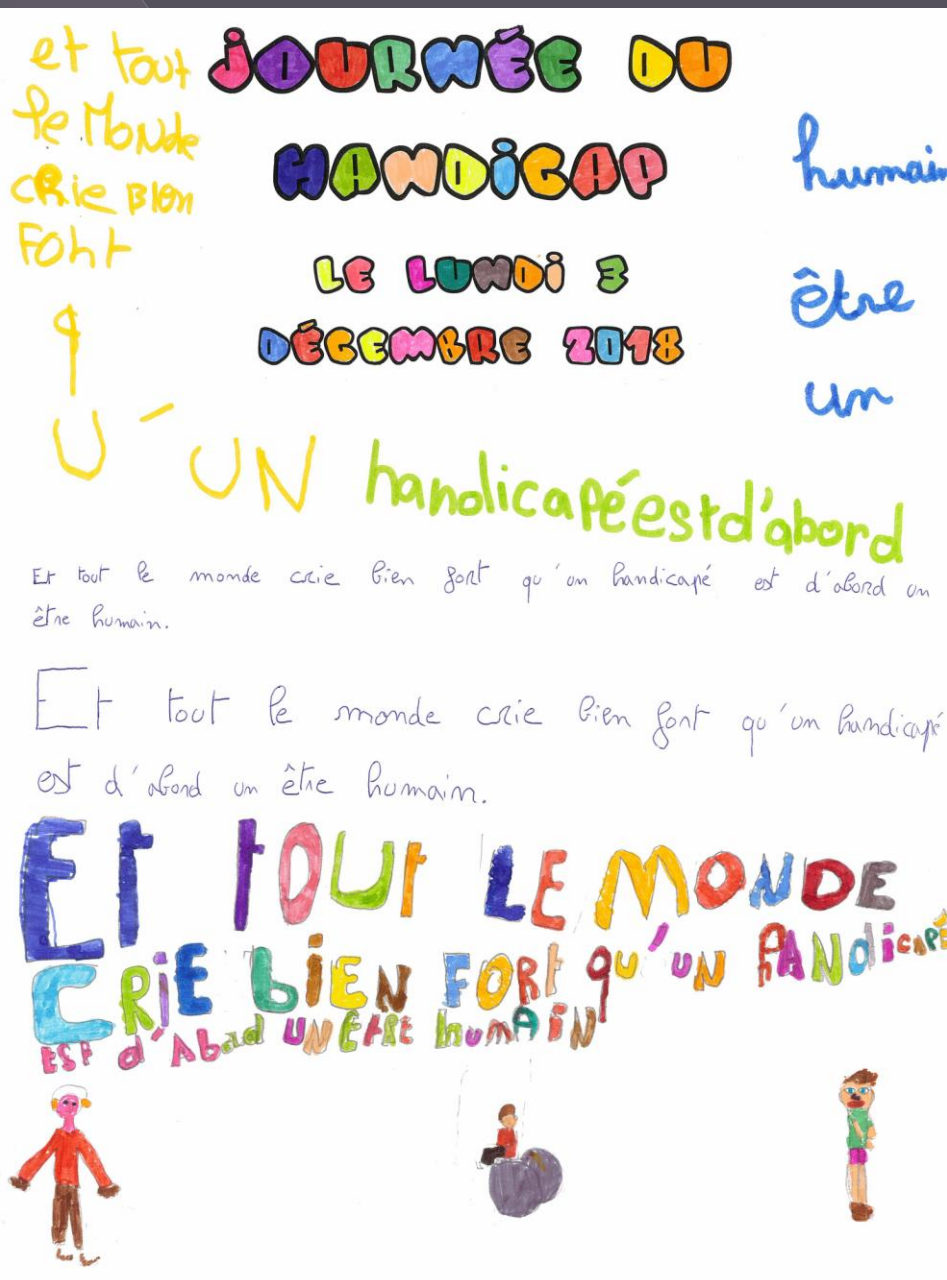 JOURNÉE DU
HANDICAP
LE LUNDI 3
DÉCEMBRE 2018
et tout
le Monde
cRie Bien
Foht
q
U'UN handicapé est d'abord
un
être
humain
Et tout le monde crie bien fort qu'un handicapé est d'abord un
être humain.
Et tout le monde crie bien font qu'un handicapé
est d'abord un être humain.
Et toUt LE MONDE
CRIE biEN FORt qU'UN hANdicapé
ESt d'Abad UN ÊtRE humAiN